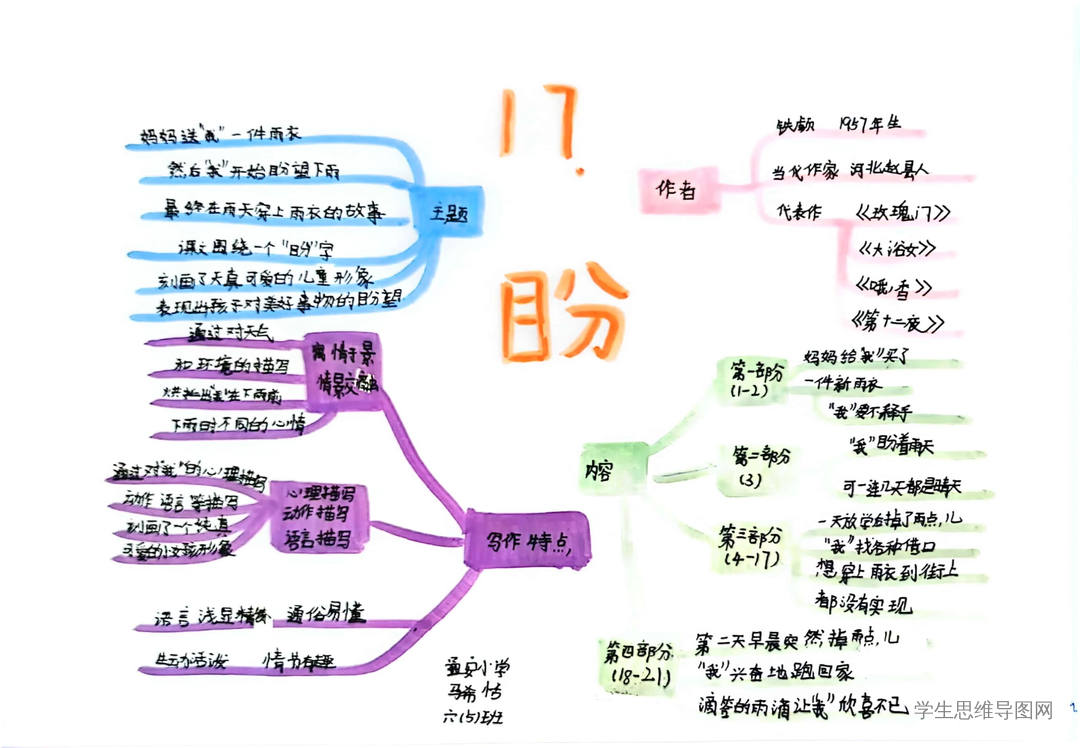 17.
盼
主题
妈妈送"我"一件雨衣
然后"我"开始盼望下雨
最终在雨天穿上雨衣的故事
课文围绕一个"盼"字
刻画了天真可爱的儿童形象
表现出孩子对美好事物的盼望
作者
铁凝 1957年生
当代作家 河北赵县人
代表作 《玫瑰门》
《大浴女》
《哦,香》
《第十二夜》
写作特点
寓情于景
情景交融
通过对天气
和环境的描写
烘托出"我"在下雨前
下雨时不同的心情
心理描写
动作描写
语言描写
通过对"我"的心理描写
动作 语言等描写
刻画了一个纯真
可爱的小女孩形象
语言浅显精练 通俗易懂
生动活泼 情节有趣
内容
第一部分
(1-2)
妈妈给"我"买了
一件新雨衣
"我"爱不释手
第二部分
(3)
"我"盼着雨天
可一连几天都是晴天
第三部分
(4-17)
一天放学后掉了雨点儿
"我"找各种借口
想穿上雨衣到街上
都没有实现
第四部分
(18-21)
第二天早晨突然掉雨点儿
"我"兴奋地跑回家
滴答的雨滴让"我"欣喜不已
小学
六(5)班
学生思维导图网